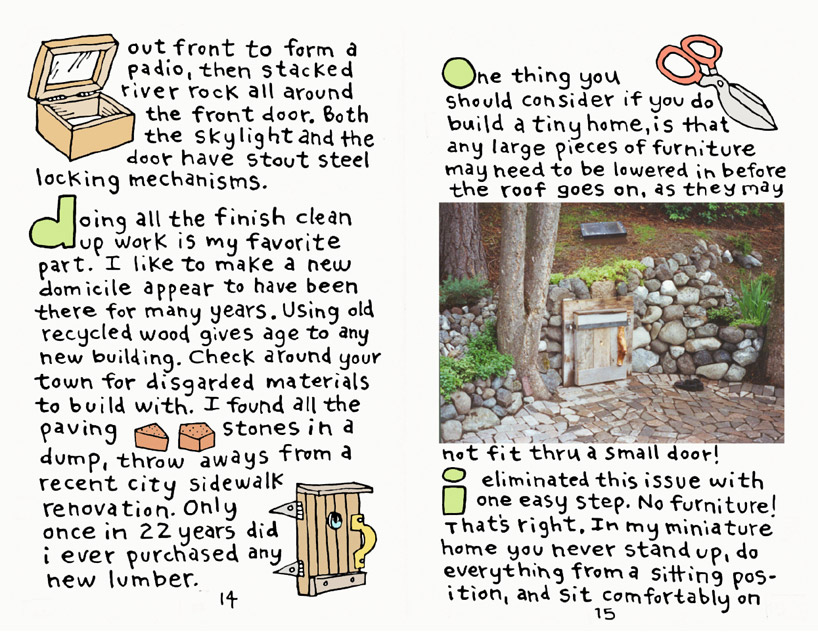 out front to form a
padio, then stacked
river rock all around
the front door. Both
the skylight and the
door have stout steel
locking mechanisms.
doing all the finish clean
up work is my favorite
part. I like to make a new
domicile appear to have been
there for many years. Using old
recycled wood gives age to any
new building. Check around your
town for disgarded materials
to build with. I found all the
paving stones in a
dump, throw aways from a
recent city sidewalk
renovation. Only
once in 22 years did
i ever purchased any
new lumber.
14
One thing you
should consider if you do
build a tiny home, is that
any large pieces of furniture
may need to be lowered in before
the roof goes on, as they may
not fit thru a small door!
i eliminated this issue with
one easy step. No furniture!
That's right. In my miniature
home you never stand up, do
everything from a sitting pos-
ition, and sit comfortably on
15